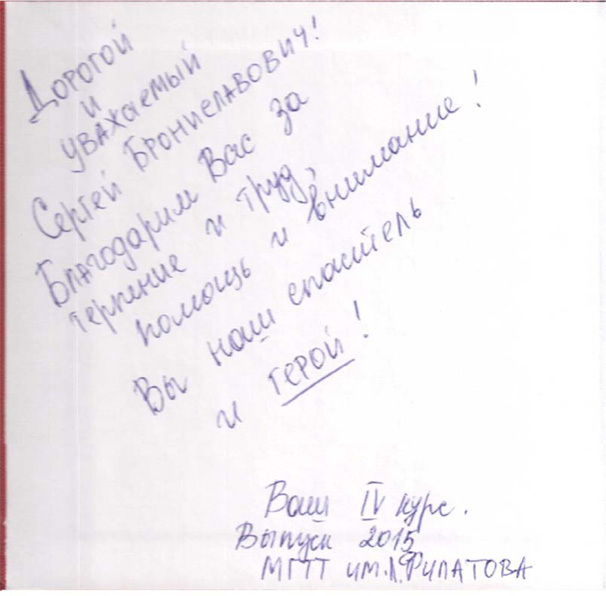 Дорогой
и
уважаемый
Сергей Брониславович!
Благодарим Вас за
терпение и труд,
помощь и внимание!
Вы наш спаситель
и герой!
Ваш IV курс.
Выпуск 2015
МГТТ им.Л.Филатова